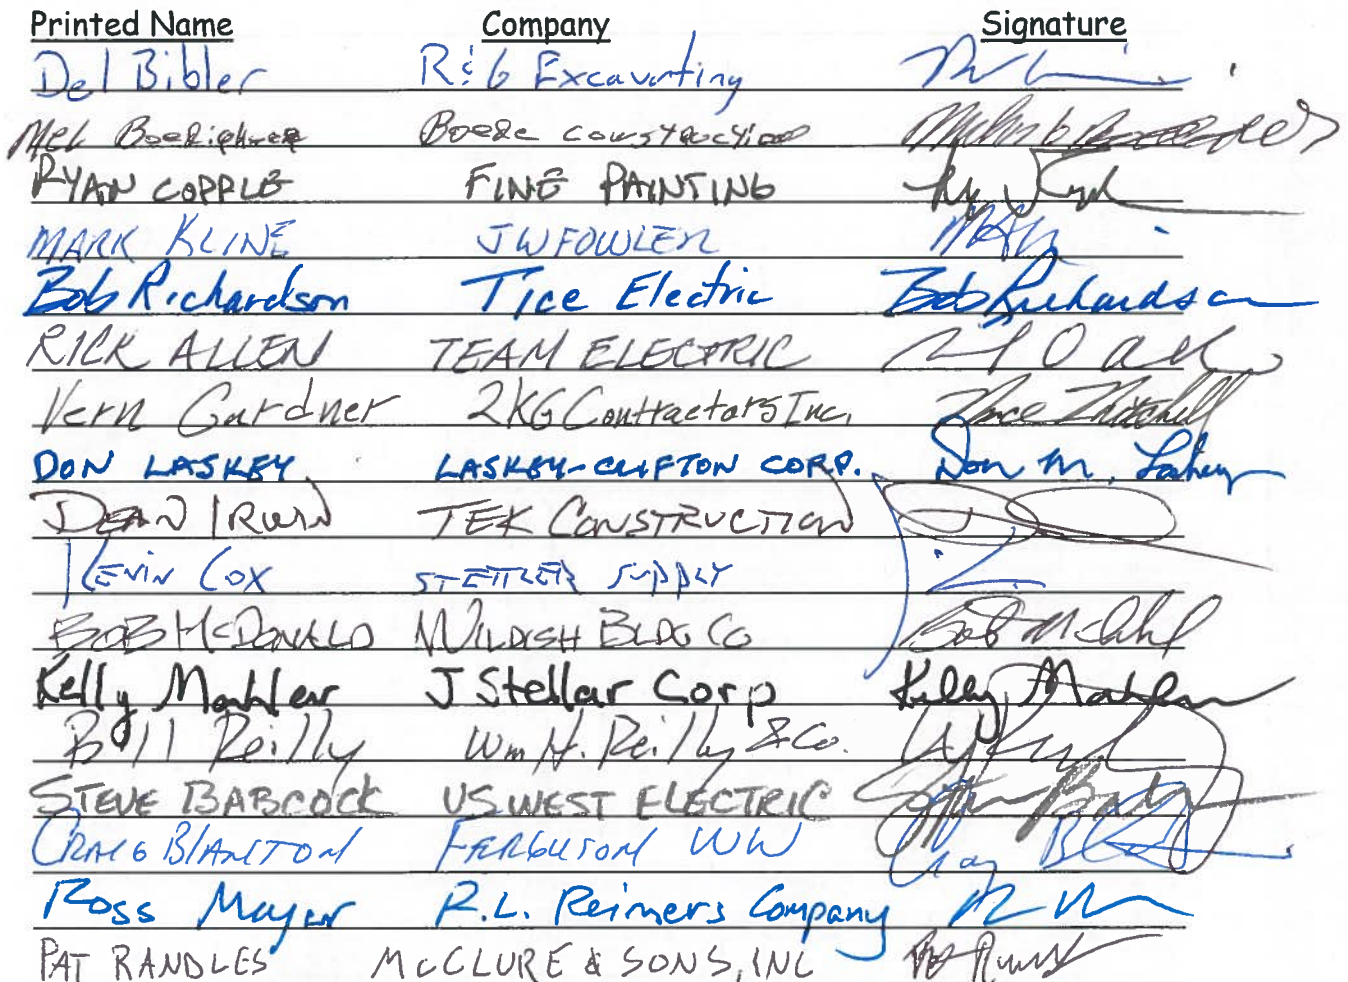 Printed Name Company Signature
Del Bibler R & G Excavating
Mel Boede construction
RYAN COPPLE FINE PAINTING
MARK KLINE JW FOWLER
Bob Richardson Tice Electric Bob Richardson
RICK ALLEN TEAM ELECTRIC
Vern Gardner 2KG Contractors Inc. Vince Mitchell
DON LASKEY LASKEY-CLIFTON CORP. Don M. Laskey
DEAN IRWIN TEK CONSTRUCTION
KEVIN COX STETTLER SUPPLY
BOB MCDONALD WILDISH BLDG CO Bob McDonald
Kelly Mahler J Stellar Corp Kelly Mahler
Bill Reilly Wm H. Reilly & Co.
STEVE BABCOCK US WEST ELECTRIC
CRAIG BLANTON FERGUSON WW Craig
Ross Mayer R.L. Reimers Company
PAT RANDLES McCLURE & SONS, INC